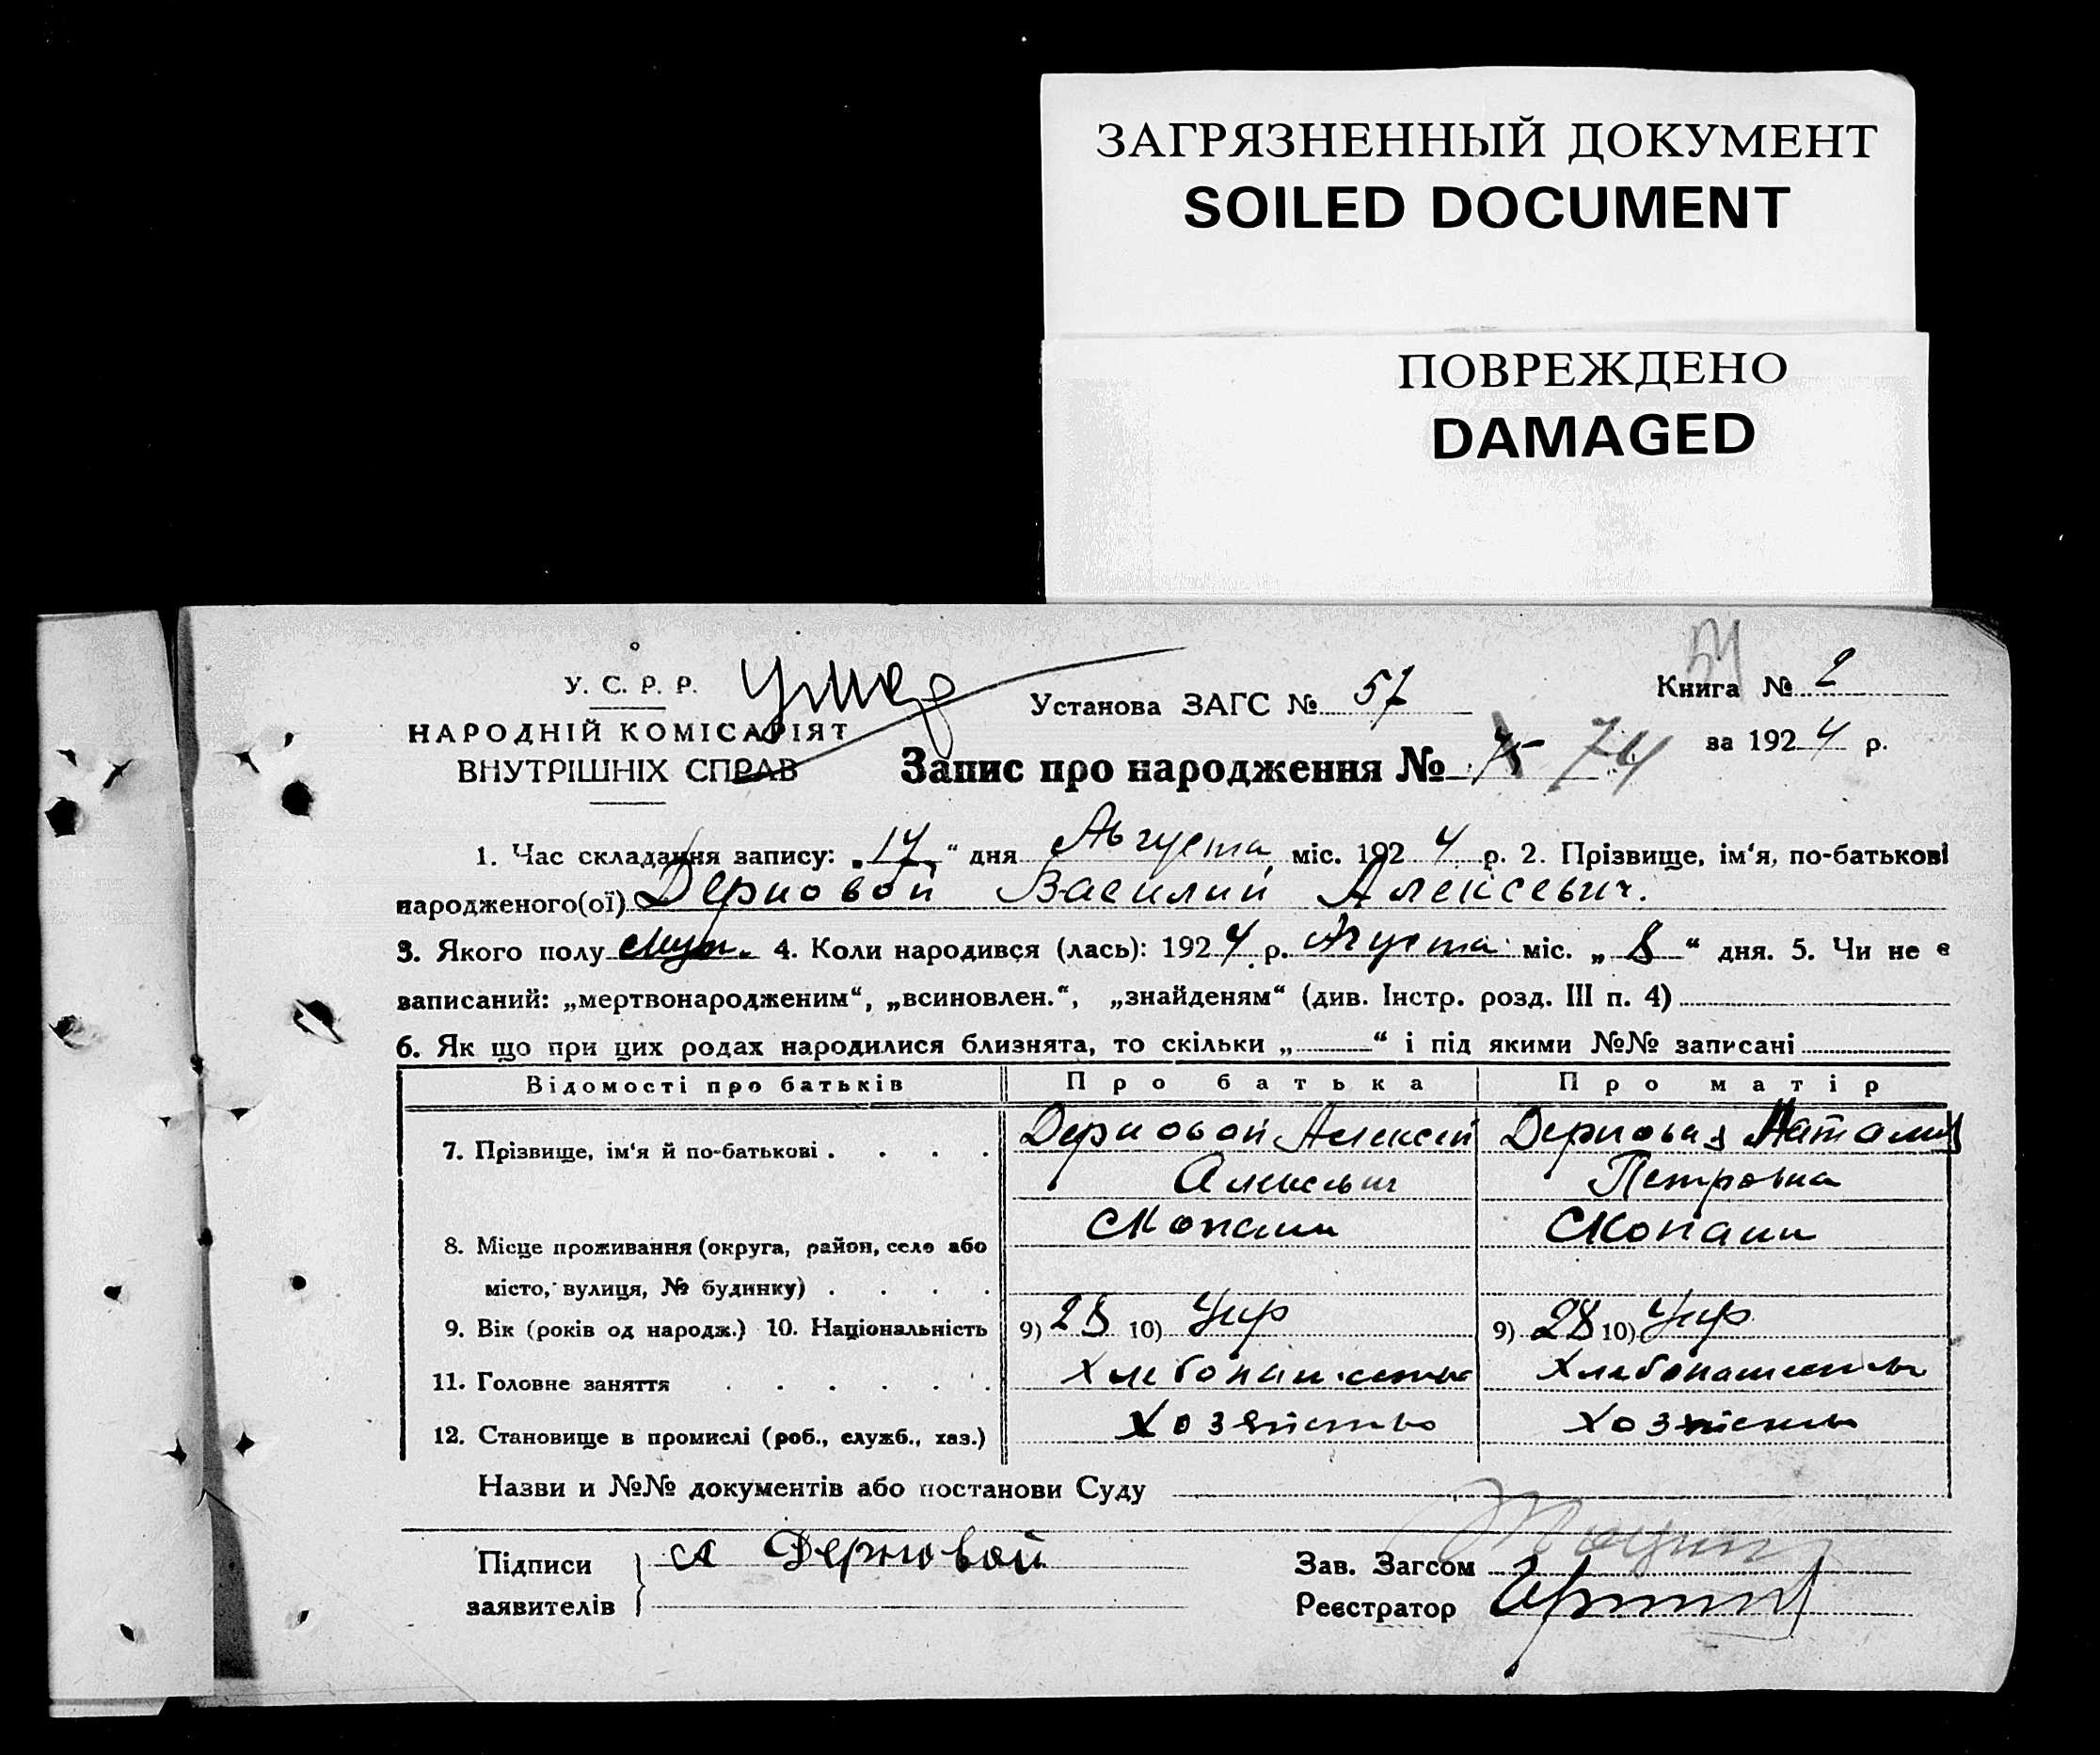 ЗАГРЯЗНЕННЫЙ ДОКУМЕНТ
SOILED DOCUMENT
ПОВРЕЖДЕНО
DAMAGED
У. С. Р. Р.
умер
НАРОДНІЙ КОМІСАРІЯТ
ВНУТРІШНІХ СПРАВ
Установа ЗАГС № 57
Книга № 2
за 1924 р.
Запис про народження № 74
1. Час складання запису: „17“ дня Августа міс. 1924 р. 2. Прізвище, ім‘я, по-батькові
народженого(ої) Дерновой Василий Алексеевич.
3. Якого полу муж. 4. Коли народився (лась): 1924 р. Августа міс. „8“ дня. 5. Чи не є
записаний: „мертвонародженим“, „всиновлен.“, „знайденям“ (див. Інстр. розд. III п. 4)
6. Як що при цих родах народилися близнята, то скільки „ “ і під якими №№ записані
Відомості про батьків Про батька Про матір
7. Прізвище, ім‘я й по-батькові . . . . Дерновой Алексей Дерновая Наталия
Алексеевич Петровна
8. Місце проживання (округа, район, село або Скопани Скопани
місто, вулиця, № будинку) . . . .
9. Вік (років од народж.) 10. Національність 9) 28 10) Укр 9) 28 10) Укр
11. Головне заняття . . . . . . Хлебопашество Хлебопашество
12. Становище в промислі (роб., служб., хаз.) Хозяйство Хозяйство
Назви и №№ документів або постанови Суду
Підписи А Дерновой
заявителів
Зав. Загсом
Реєстратор